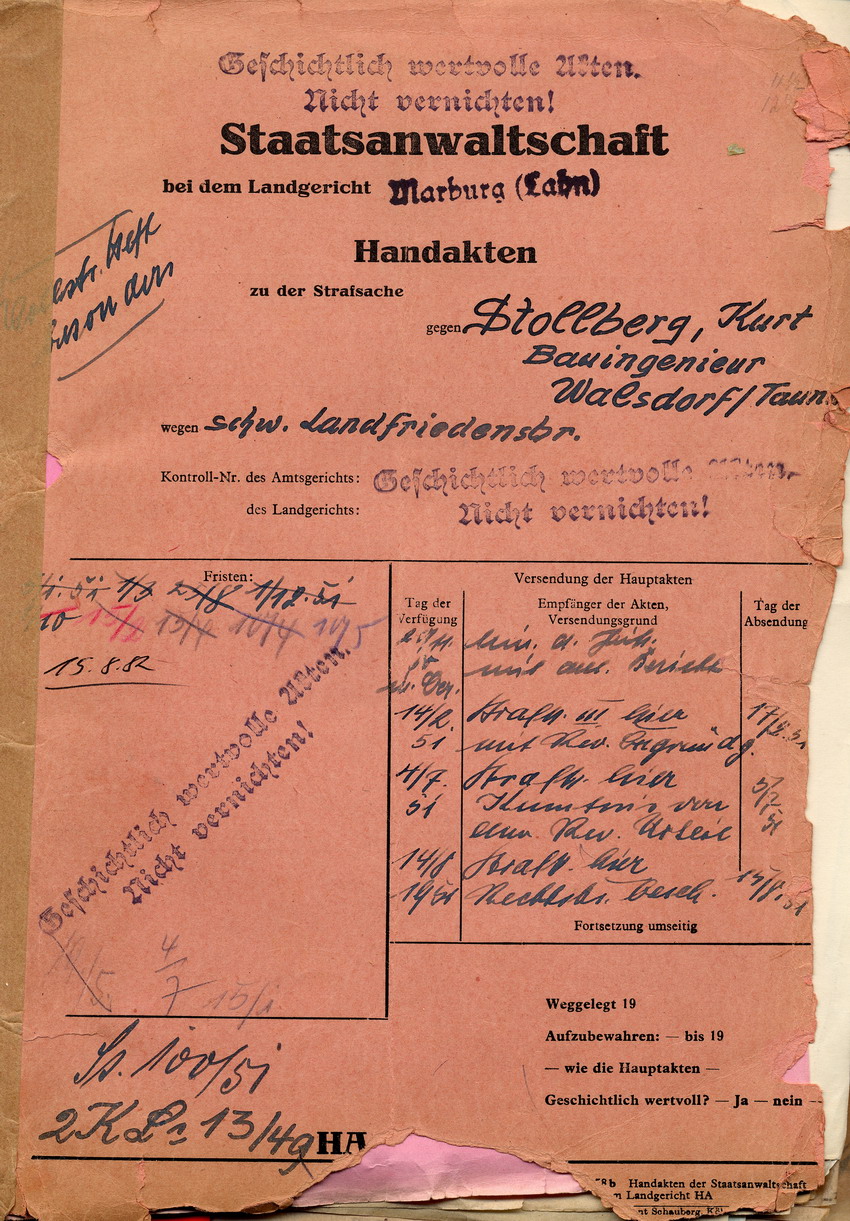 Geschichtlich wertvolle Akten.
Nicht vernichten!
Staatsanwaltschaft
bei dem Landgericht Marburg (Lahn)
Handakten
zu der Strafsache
gegen Stollberg, Kurt
Bauingenieur
Walsdorf/Taun
wegen schw. Landfriedensbr.
Kontroll-Nr. des Amtsgerichts:
des Landgerichts:
Geschichtlich wertvolle Akten.
Nicht vernichten!
Heft
Fristen:
1/12.51
15/2 15/4 10/4 10/5
15.8.82
Geschichtlich wertvolle Akten.
Nicht vernichten!
4/7 15/1
Versendung der Hauptakten
Tag der Verfügung
Empfänger der Akten, Versendungsgrund
Tag der Absendung
Min. d. Just.
mit Bericht
14/2. Strafk. III hier 17/2.51
51 mit Rev. Begründg.
4/7. Strafk. hier 5/7 51
51 Kenntnis von
dem Rev. Urteil
14/8 Strafk. hier 15/8.51
1951 Rechtskr. Besch.
Fortsetzung umseitig
Weggelegt 19
Aufzubewahren: — bis 19
— wie die Hauptakten —
Geschichtlich wertvoll? — Ja — nein —
Ss. 100/51
2 KLs 13/49 HA
8b Handakten der Staatsanwaltschaft
Landgericht HA
Schauberg, Köl